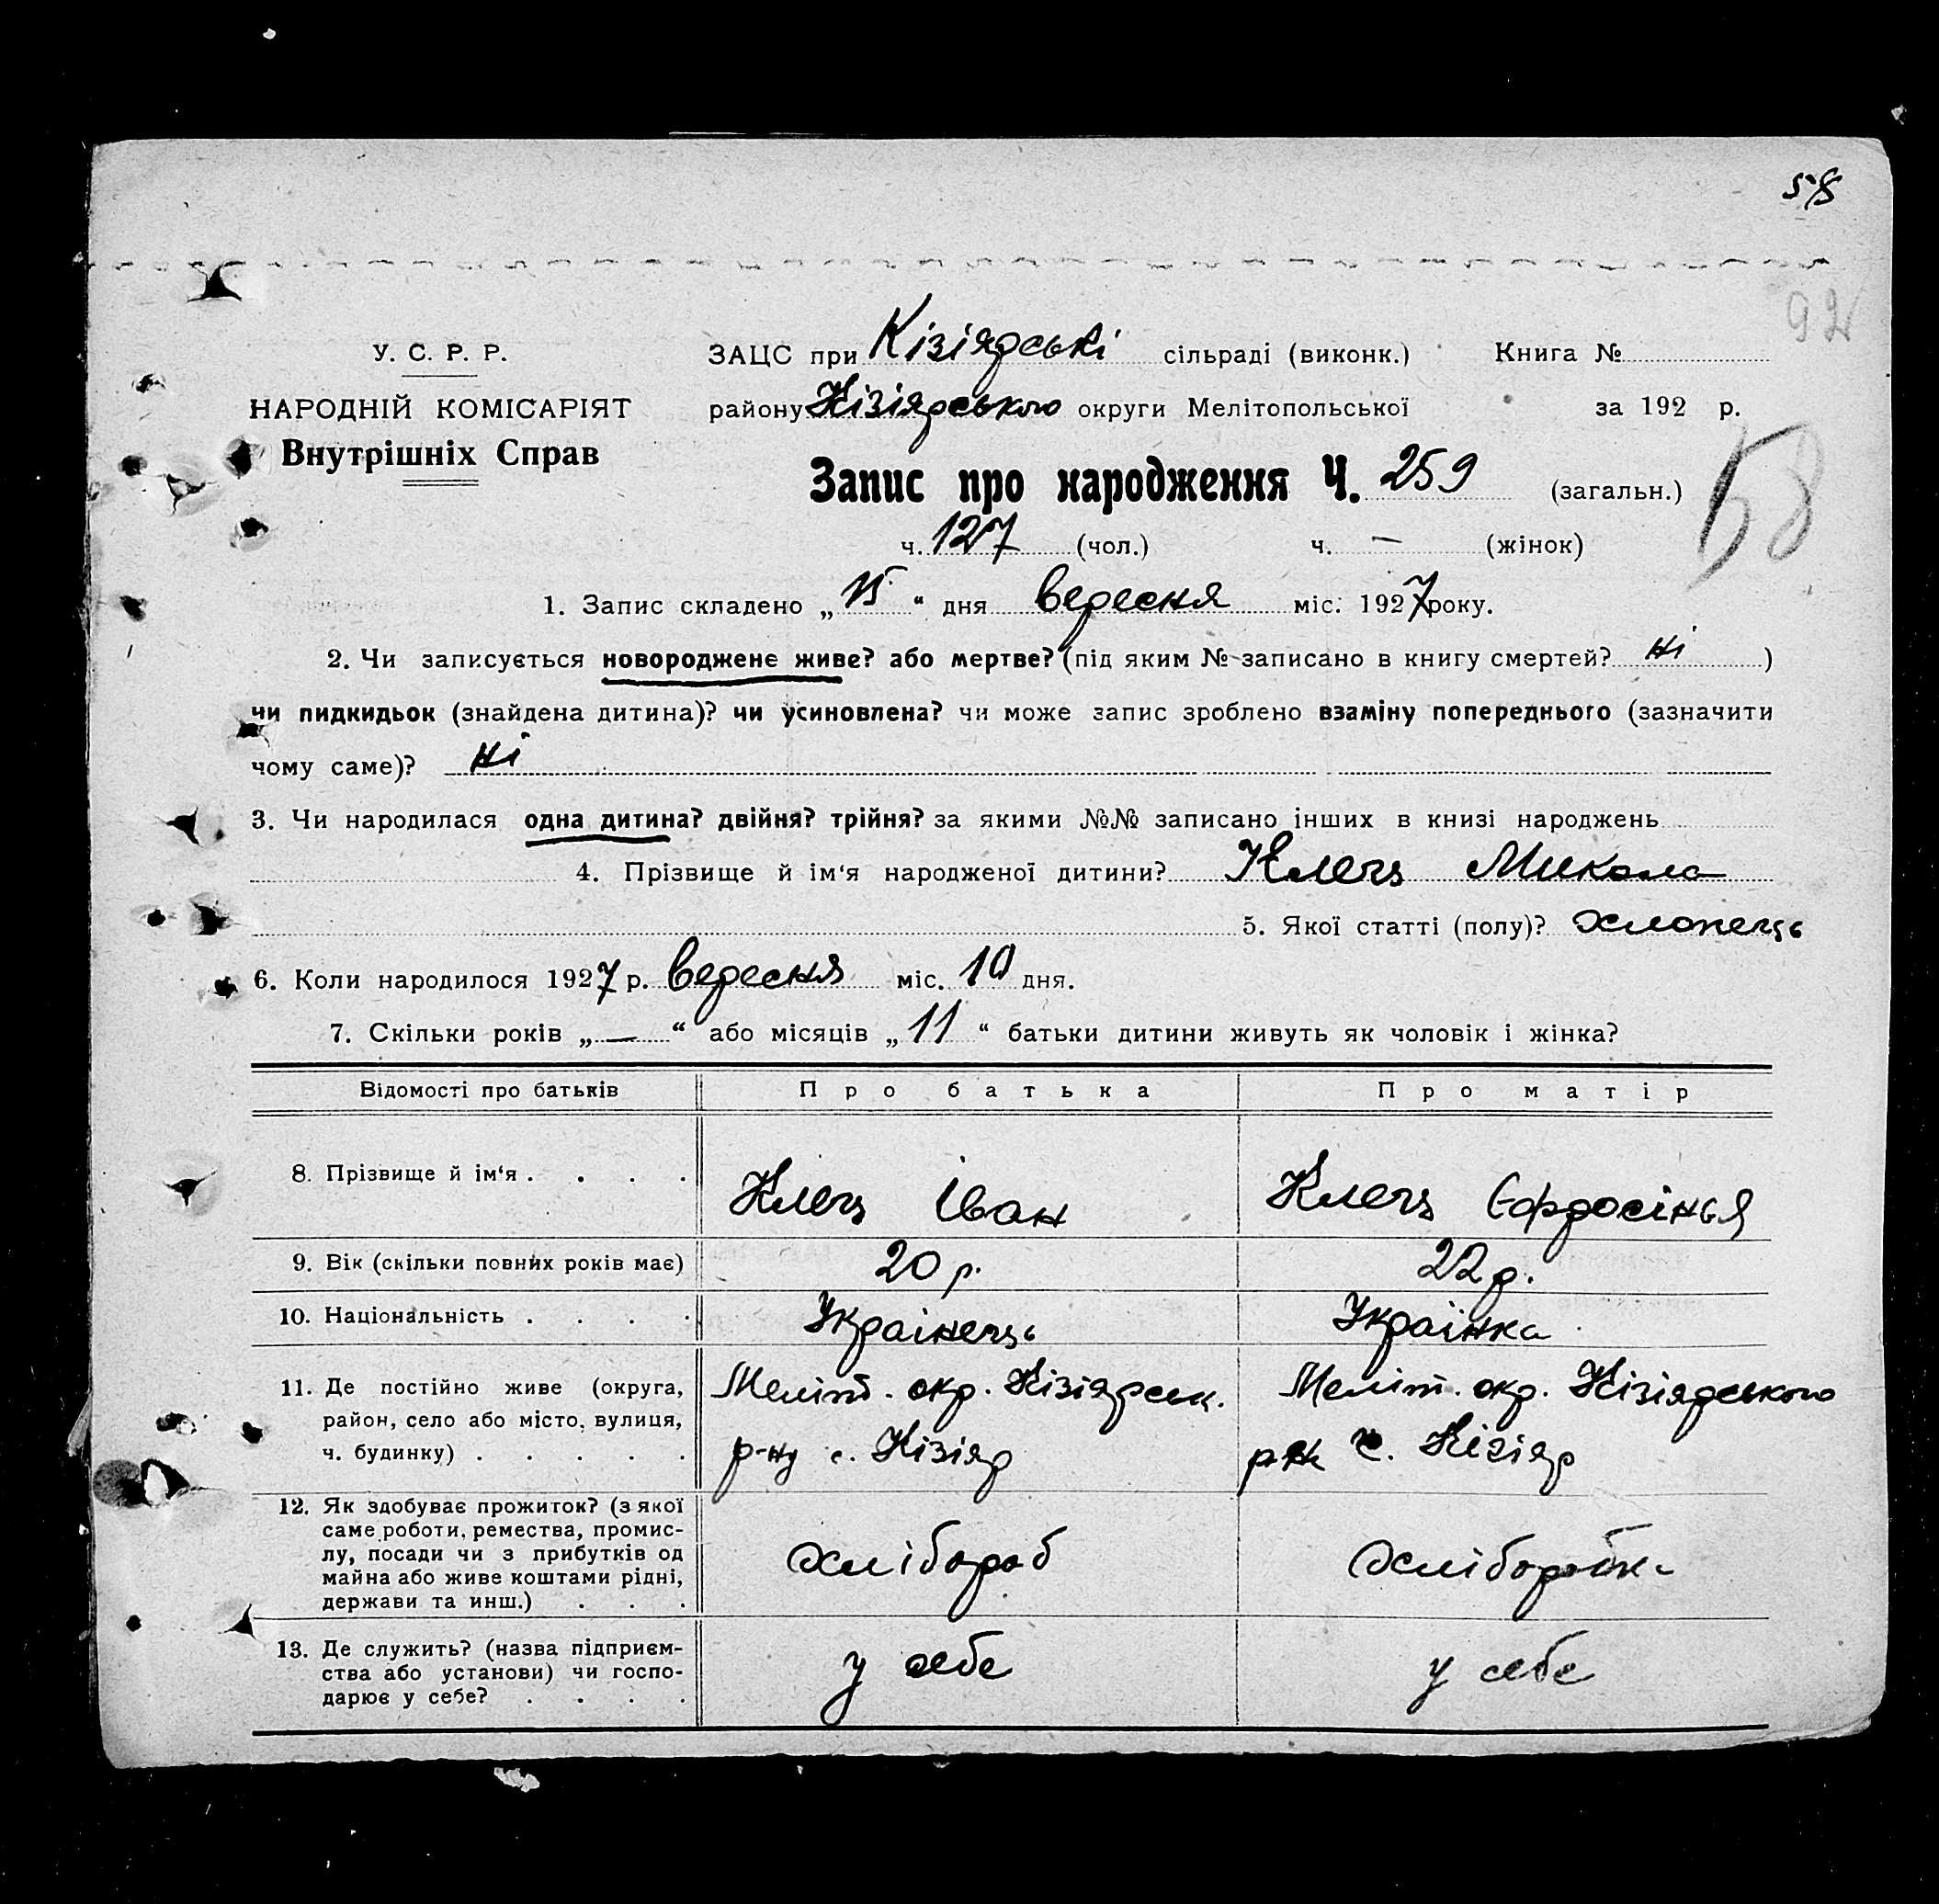 58
92
У. С. Р. Р.
НАРОДНІЙ КОМІСАРІЯТ
Внутрішніх Справ
ЗАЦС при Кізіярські сільраді (виконк.) Книга №
району Кізіярського округи Мелітопольської за 192 р.
58
Запис про народження Ч. 259 (загальн.)
ч. 127 (чол.) ч. — (жінок)
1. Запис складено „ 15 “ дня вересня міс. 1927 року.
2. Чи записується новороджене живе? або мертве? (під яким № записано в книгу смертей? ні )
чи пидкидьок (знайдена дитина)? чи усиновлена? чи може запис зроблено взаміну попереднього (зазначити
чому саме)? ні
3. Чи народилася одна дитина? двійня? трійня? за якими №№ записано інших в книзі народжень
4. Прізвище й ім‘я народженої дитини? Клец Микола
5. Якої статті (полу)? хлопець
6. Коли народилося 1927 р. вересня міс. 10 дня.
7. Скільки років „ — “ або місяців „ 11 “ батьки дитини живуть як чоловік і жінка?
Відомості про батьків Про батька Про матір
8. Прізвище й ім‘я . . . . Клец Іван Клец Єфросінья
9. Вік (скільки повних років має) 20 р. 22 р.
10. Національність . . . . Украінець Украінка
11. Де постійно живе (округа, Меліт. окр. Кізіярськ. Меліт. окр. Кізіярського
район, село або місто, вулиця,
ч. будинку) . . . . . р-ну с. Кізіяр рн с. Кізіяр
12. Як здобуває прожиток? (з якої
саме роботи, ремества, промис-
лу, посади чи з прибутків од хлібороб хліборобка
майна або живе коштами рідні,
держави та инш.) . . .
13. Де служить? (назва підприєм-
ства або установи) чи госпо- у себе у себе
дарює у себе? . . . .